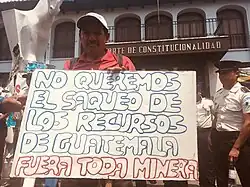 CORTE DE CONSTITUCIONALIDAD
NO QUEREMOS
EL SAQUEO DE
LOS RECURSOS
DE GUATEMALA
FUERA TODA MINERIA